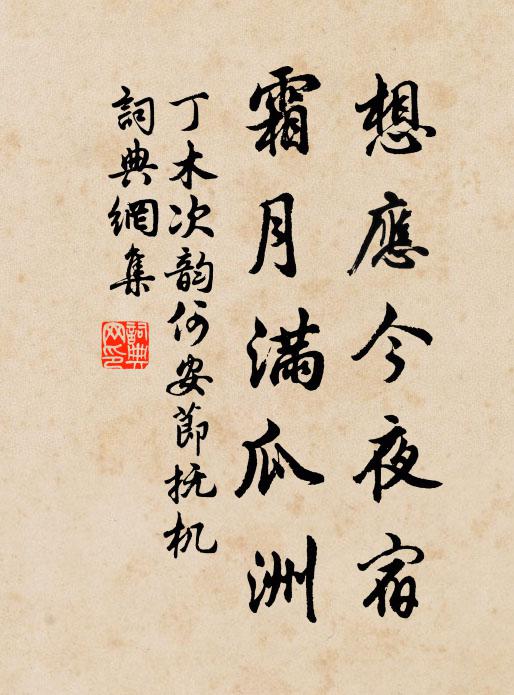 想應今夜宿
霜月滿瓜洲
丁木次韵何安節抚机
詞典網集
詞典網印